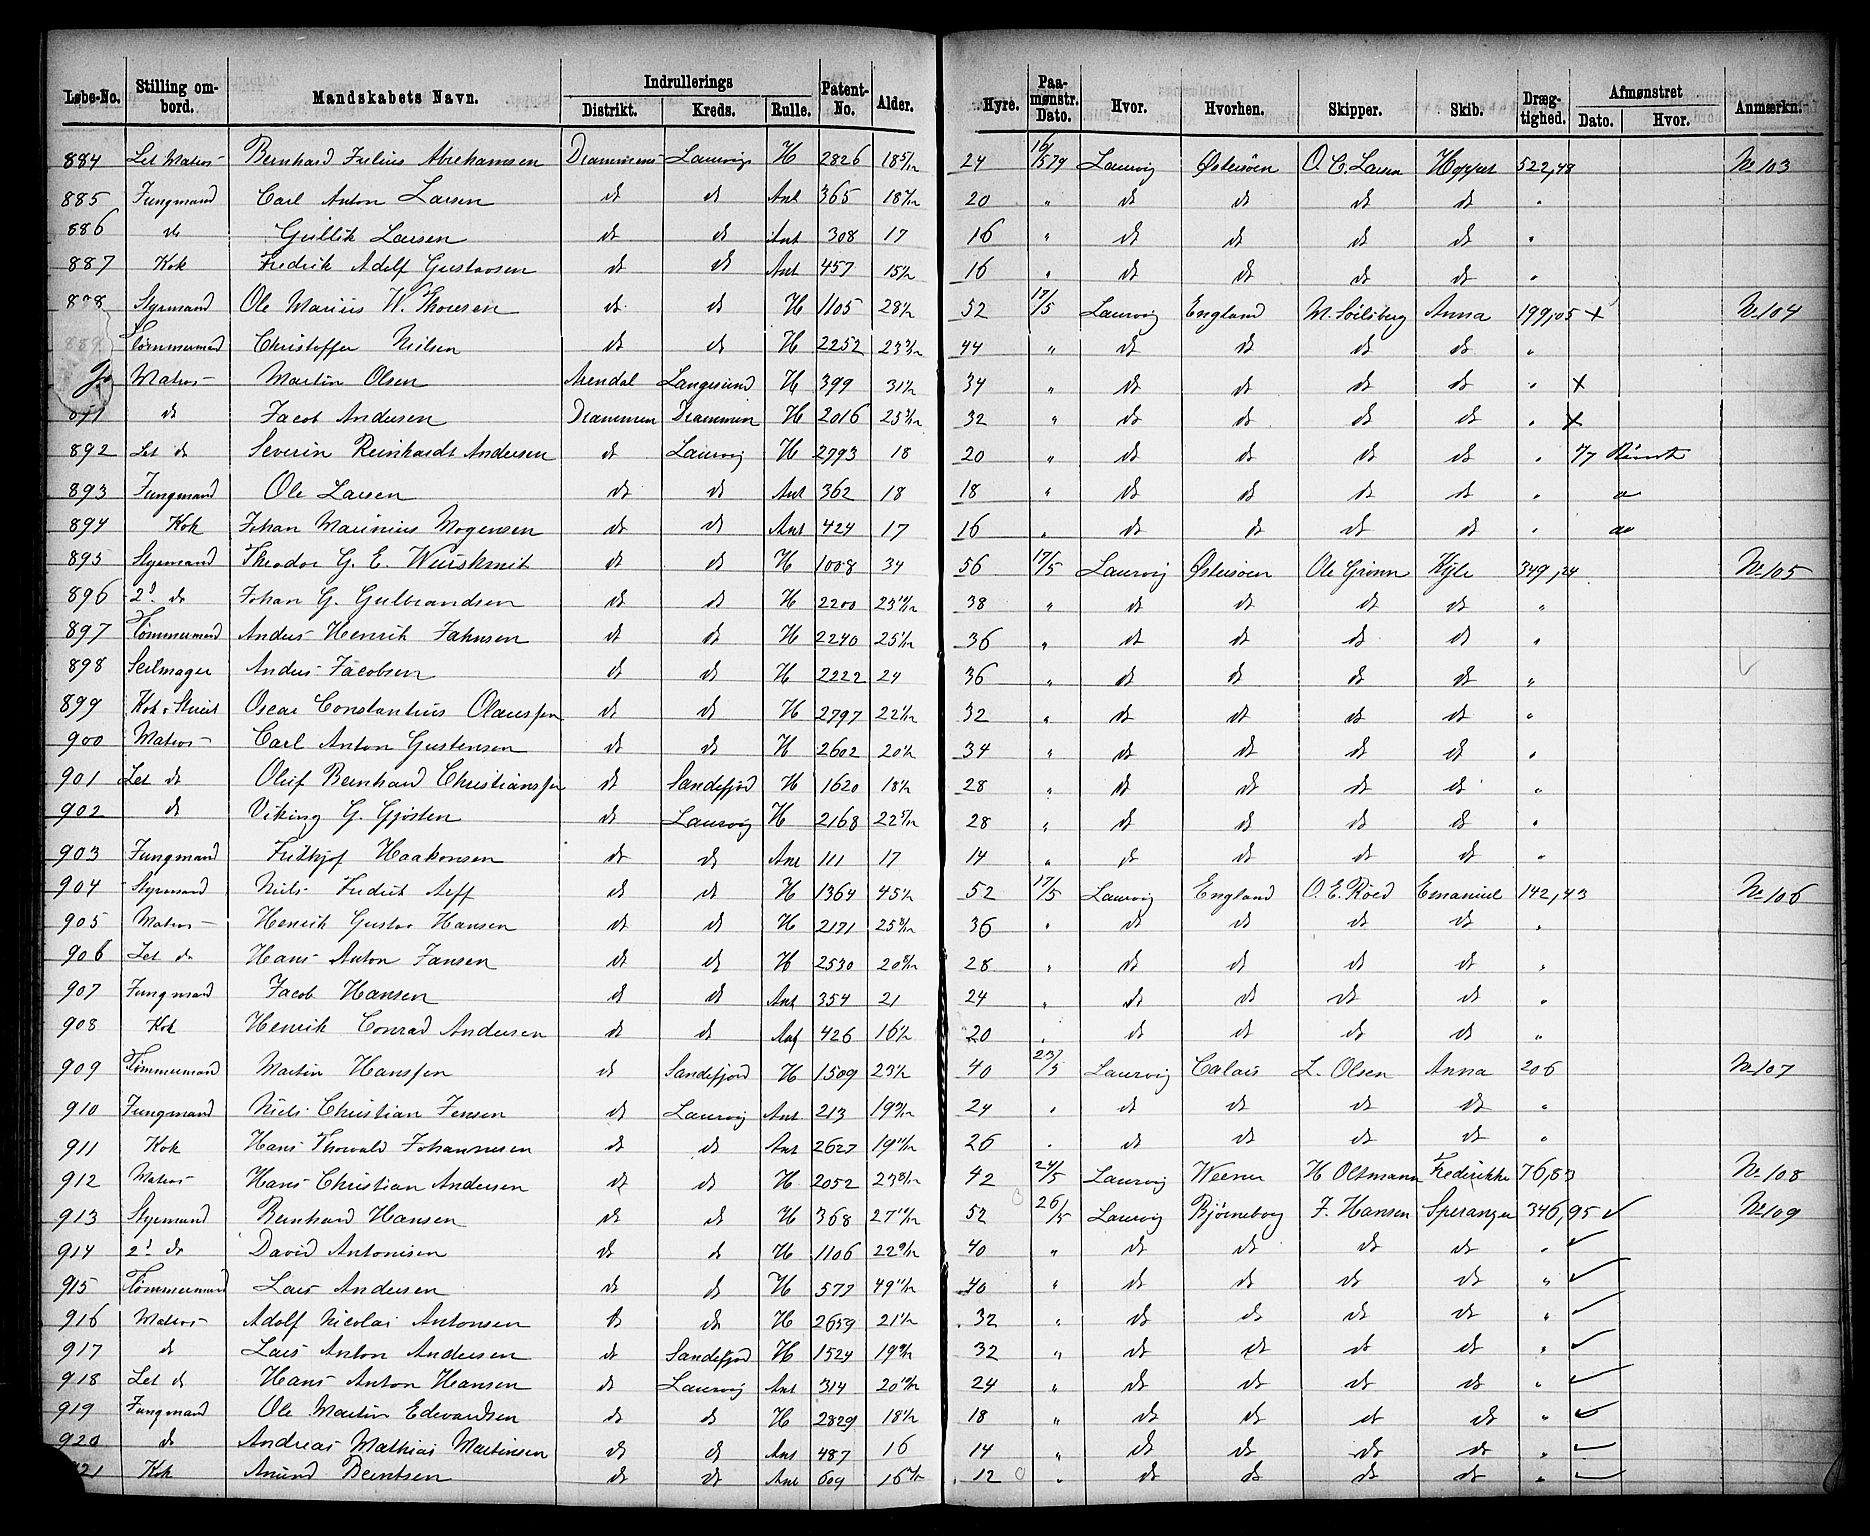 Løbe-No. Stilling ombord. Mandskabets Navn. Indrullerings Distrikt. Kreds. Rulle. Patent-No. Alder. Hyre. Paamønstr. Dato. Hvor. Hvorhen. Skipper. Skib. Drægtighed. Afmønstret Dato. Hvor. Anmærkn.
884 Let Matros Bernhard Julius Abrahamsen Drammens Laurvigs H 2826 18 5/12 24 16/5 79 Laurvig Østersøen O. C. Larsen 522,48 No 103
885 Jungmand Carl Anton Larsen dt dt Ant 365 20 " dt dt dt dt "
886 do Gullik Larsen dt dt Ant 308 17 16 " dt dt dt dt "
887 Kok Fredrik Adolf Gustavsen dt dt Ant 457 15 1/2 16 " dt dt dt dt "
888 Styrmand Ole Marius W. Thoresen dt dt H 1105 28 1/2 52 17/5 Laurvig England Anna 199,05 x No 104
889 Tømmermand Christoffer Nilsen dt dt H 2252 44 " dt dt dt dt "
Matros Martin Olsen Arendal Langesund H 399 31 1/2 34 " dt dt dt dt " x
891 dt Jacob Andersen Drammen Drammen H 2016 32 " dt dt dt dt " x
892 Let do Severin Reinhardt Andersen dt Laurvig H 2793 18 20 " dt dt dt dt "
893 Jungmand Ole Larsen dt dt Ant 362 18 18 " dt dt dt dt "
894 Kok Johan Marinius Mogensen dt dt Ant 424 17 16 " dt dt dt dt " do
895 Styrmand Theodor G. E. dt dt H 1008 34 56 17/5 Laurvig Østersøen Ole Grønn 349,24 No 105
896 2d do Johan G. Gulbrandsen dt dt H 2200 38 " dt dt dt dt "
897 Tømmermand Anders Henrik Jahnsen dt dt H 2240 36 " dt dt dt dt "
898 Seilmager Anders Jacobsen dt dt H 2222 24 36 " dt dt dt dt "
899 Kok & Stuert Oscar Constantius Olaussen dt dt H 2797 32 " dt dt dt dt "
900 Matros Carl Anton Gustensen dt dt H 2602 20 1/2 34 " dt dt dt dt "
901 Let dt Oluf Bernhard Christianssen dt Sandefjord H 1620 18 1/2 28 " dt dt dt dt "
902 dt Viking G. Gjøsten dt Laurvig H 2168 28 " dt dt dt dt "
903 Jungmand Fridtjof Haakonsen dt dt Ant 111 17 14 " dt dt dt dt "
904 Styrmand Niels Fredrik dt dt H 1364 45 1/2 52 17/5 Laurvig England O. E. Røed Emanuel 142,43 No 106
905 Matros Henrik Gustav Hansen dt dt H 2171 36 " dt dt dt dt "
906 Let do Hans Anton Jansen dt dt H 2530 28 " dt dt dt dt "
907 Jungmand Jacob Hansen dt dt Ant 354 21 24 " dt dt dt dt "
908 Kok Henrik Conrad Andersen dt dt Ant 426 16 1/2 20 " dt dt dt dt "
909 Tømmermand Martin Hanssen dt Sandefjord H 1509 23 1/2 40 23/5 Laurvig Calais L. Olsen Anna 206 No 107
910 Jungmand Niels Christian Jensen dt Laurvig Ant 213 24 " dt dt dt dt "
911 Kok Hans Thorvald Johannesen dt dt Ant 2627 26 " dt dt dt dt "
912 Matros Hans Christian Andersen dt dt H 2052 42 24/5 Laurvig Weener H Oltmann Fredrikke 76,83 No 108
913 Styrmand Bernhard Hansen dt dt H 368 52 26/5 Laurvig Bjørneborg J. Hansen Speranza 346,95 ✓ No 109
914 2d do David Antonisen dt dt H 1106 40 " dt dt dt dt " ✓
915 Tømmermand Lars Andersen dt dt H 577 40 " dt dt dt dt " ✓
916 Matros Adolf Nicolai Antonsen dt dt H 2659 21 1/2 32 " dt dt dt dt " ✓
917 dt Lars Anton Andersen dt Sandefjord H 1524 32 " dt dt dt dt " ✓
918 Let d Hans Anton Hansen dt Laurvig Ant 314 24 " dt dt dt dt " ✓
919 Jungmand Ole Martin Edvardsen dt dt H 2829 18 1/2 18 " dt dt dt dt " ✓
920 do Andreas Mathias Martinsen dt dt Ant 487 16 14 " dt dt dt dt " ✓
921 Kok Anund Berntsen dt dt Ant 609 12 " dt dt dt dt " ✓